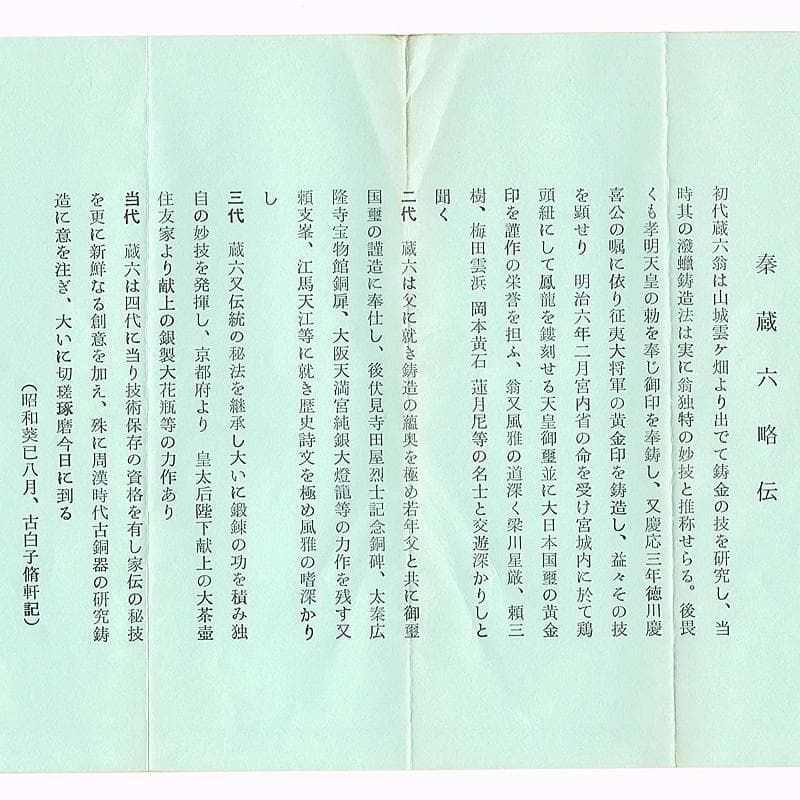 秦蔵六略伝
初代蔵六翁は山城雲ケ畑より出でて鋳金の技を研究し、当
時其の潑蠟鋳造法は実に翁独特の妙技と推称せらる。後畏
くも孝明天皇の勅を奉じ御印を奉鋳し、又慶応三年徳川慶
喜公の嘱に依り征夷大将軍の黄金印を鋳造し、益々その技
を顕せり　明治六年二月宮内省の命を受け宮城内に於て鶏
頭紐にして鳳龍を鏤刻せる天皇御璽並に大日本国璽の黄金
印を謹作の栄誉を担ふ、翁又風雅の道深く梁川星厳、頼三
樹、梅田雲浜　岡本黄石　蓮月尼等の名士と交遊深かりしと
聞く
二代　蔵六は父に就き鋳造の蘊奥を極め若年父と共に御璽
国璽の謹造に奉仕し、後伏見寺田屋烈士記念銅碑、太秦広
隆寺宝物館銅扉、大阪天満宮純銀大燈籠等の力作を残す又
頼支峯、江馬天江等に就き歴史詩文を極め風雅の嗜深かり
し
三代　蔵六又伝統の秘法を継承し大いに鍛錬の功を積み独
自の妙技を発揮し、京都府より　皇太后陛下献上の大茶壺
住友家より献上の銀製大花瓶等の力作あり
当代　蔵六は四代に当り技術保存の資格を有し家伝の秘技
を更に新鮮なる創意を加え、殊に周漢時代古銅器の研究鋳
造に意を注ぎ、大いに切瑳琢磨今日に到る
（昭和葵巳八月、古白子脩軒記）